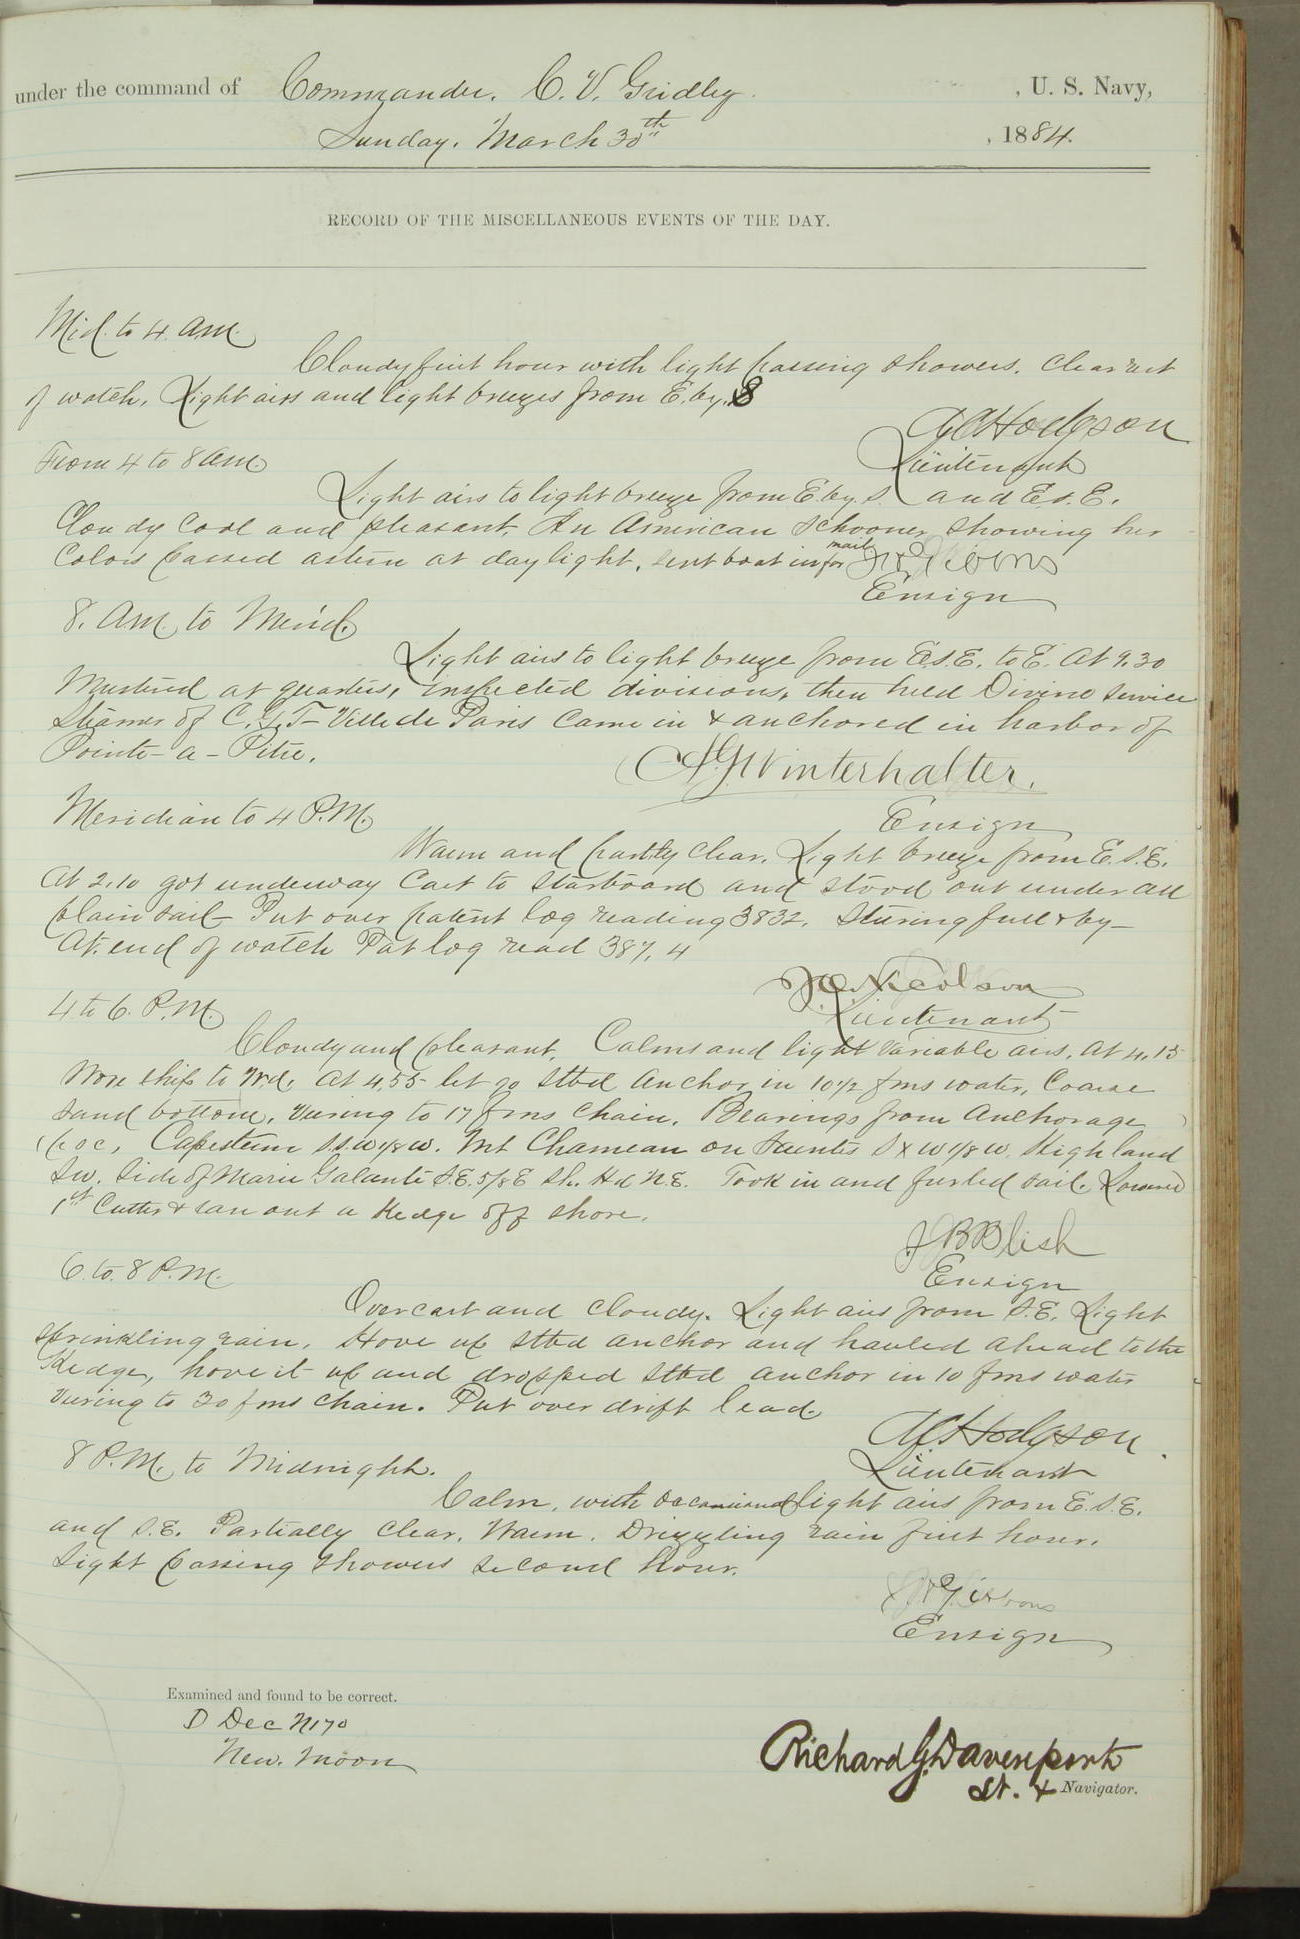 under the command of Commander. C. V. Gridley. , U. S. Navy,
Sunday. March 30th , 1884.
RECORD OF THE MISCELLANEOUS EVENTS OF THE DAY.
Mid. to 4 a.m.
Cloudy first hour with light passing showers. Clear rest
of watch. Light airs and light breezes from E. by. S
A C Hodgson
Lieutenant
From 4 to 8 am.
Light airs to light breeze from E. by. S. and E.S.E.
Cloudy cool and pleasant. An American Schooner showing her
Colors passed astern at daylight. Sent boat in for mail
J H Gibbons
Ensign
8. Am. to Merid.
Light airs to light breeze from E.S.E. to E. At 9.30
Mustered at quarters, inspected divisions, then held Divine Service
Steamer of C. G. T– Ville de Paris came in & anchored in harbor of
Pointe-a-Pitre.
A G Winterhalter.
Ensign
Meridian to 4 P.M.
Warm and partly clear. Light breeze from E.S.E.
At 2.10 got underway Cast to Starboard and stood out under all
plain sail– Put over patent log reading 383 2. Steering full & by–
At end of watch Pat log read 387.4
Lieutenant
4 to 6. P.M.
Cloudy and pleasant. Calms and light variable airs. At 4.15
Wore ship to Wd. At 4.55 let go Stbd Anchor in 10 1/2 fms water, Coarse
sand bottom, veering to 17 fms Chain. Bearings from Anchorage
(p o c, Capesterre S.S.W 1/8 W. Mt Chameau on Saintes S x W 1/8 W. Highland
Sw. Side of Marie Galante S.E. 5/8 E Sh. Hd N.E. Took in and furled sail. Lowered
1st Cutter & ran out a Kedge off shore.
J B Blish
Ensign
6 to 8 P.M.
Overcast and cloudy. Light airs from S.E. Light
sprinkling rain. Hove up stbd anchor and hauled ahead to the
Kedge, hove it up and dropped stbd anchor in 10 fms water
Veering to 30 fms chain. Put over drift lead.
A C Hodgson
Lieutenant
8 P.M. to Midnight.
Calm, with occasional light airs from E.S.E.
and S.E. Partially clear. Warm. Drizzling rain first hour.
Light passing showers second hour.
J H Gibbons
Ensign
Examined and found to be correct.
D Dec N 17 0
New. Moon
Richard G. Davenport
Lt. & Navigator.